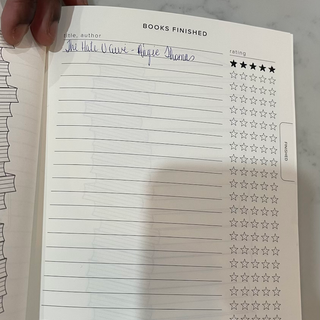 BOOKS FINISHED
title, author
rating
The Hate U Give - Angie Thomas
FINISHED